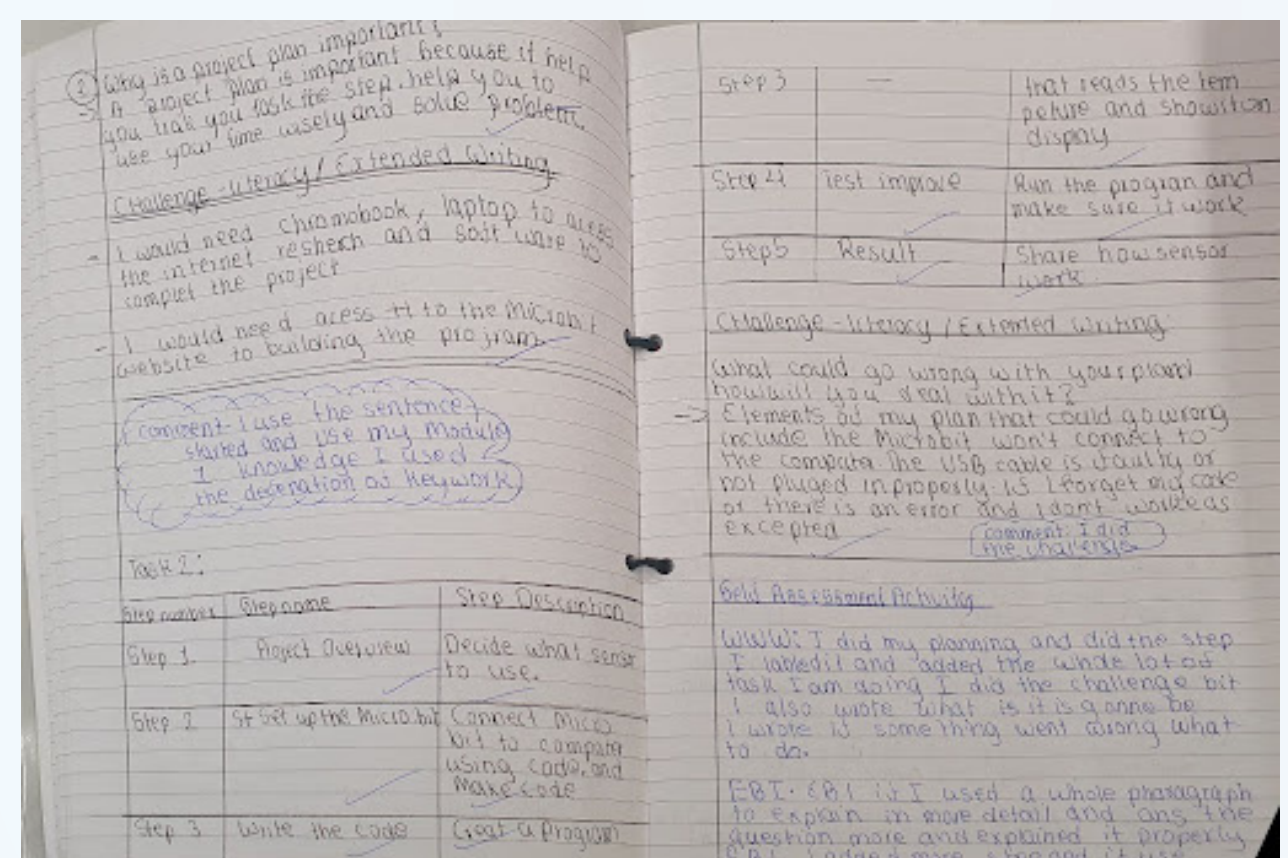 ② Why is a project plan important?
→ A project plan is important because it help
you trak you task the step. help you to
use your time wisely and solve problem.
Challenge - literacy / Extended Writing
- I would need chromobook, laptop to acess
the internet reshech and soft ware to
complet the project
- I would need acess tt to the Microbit
website to building the program
comment - I use the sentence
started and use my module
I knowledge I used
the deceration of Keywork
Task 2:
Step number Step name Step Description
Step 1 Project Overview Decide what sensor
to use.
Step 2 St Set up the Micro.bit Connect Micro
bit to computer
using code. and
Make code
Step 3 Write the code Creat a program
Step 3 — that reads the tem
peture and show it on
display
Step 4 Test improve Run the program and
make sure it work
Step 5 Result Share how sensor
work.
Challenge - literacy / Extended Writing
What could go wrong with your plan?
how will you deal with it?
→ Elements of my plan that could go wrong
include the Microbit won't connect to
the computer. The USB cable is faulty or
not pluged in properly. if I forget my code
or there is an error and I don't work as
excepted
comment: I did
the challenge
Self Assessment Activity
WWW: I did my planning and did the step
I labled it and added the whole lot of
task I am doing I did the challenge bit
I also wrote what is it is gonne be
I wrote if some thing went wrong what
to do.
EBI. EBI if I used a whole pharagraph
to explain in more detail and ans the
question more and explained it properly